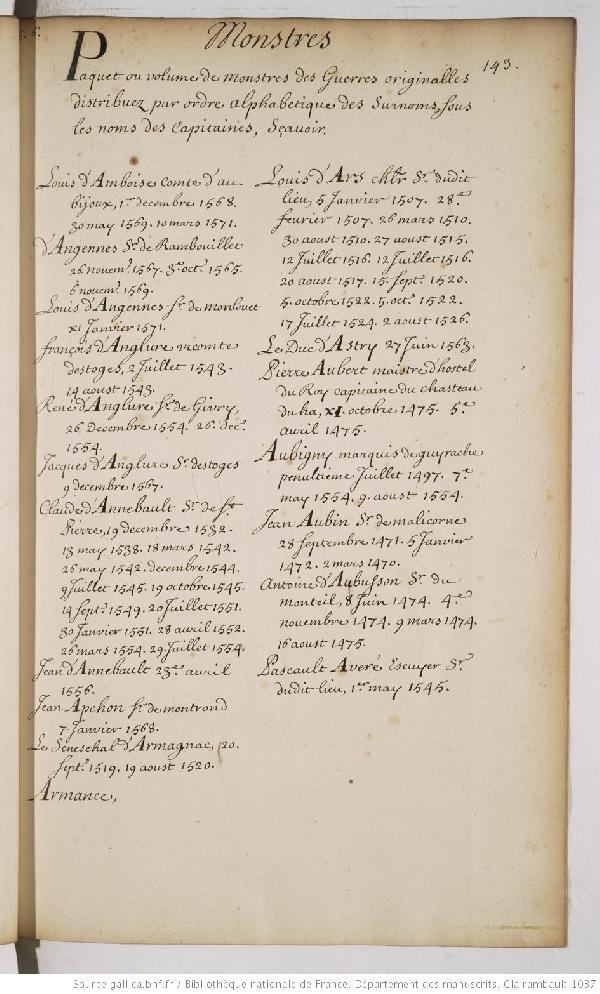 Monstres
143.
Paquet ou volume de monstres des Guerres originalles
distribuez par ordre alphabetique des Surnoms, sous
les noms des Capitaines, Sçavoir.
Louis d'Amboise Comte d'au
bijoux, 1er decembre 1568.
30 may 1569. 10 mars 1571.
d'Angennes Sr. de Rambouillet
26 novemr. 1567. 3e. octr. 1565.
6 novemr. 1569.
Louis d'Angennes Sr. de monlouet
XI Janvier 1571.
françois d'Anglure vicomte
destoges, 2 Juillet 1543.
14 aoust 1543.
René d'Anglure Sr. de Givry,
26 Decembre 1554. 26. decr.
1554.
Jacques d'Anglure Sr. destoges
9 decembre 1567.
Claude d'Annebault Sr. de St.
Pierre, 19 decembre 1532.
13 may 1538. 18 mars 1542.
26 may 1542. decembre 1544.
9 Juillet 1545. 19 octobre 1545.
14 Septr. 1549. 20 Juillet 1551.
30 Janvier 1551. 28 avril 1552.
26 mars 1554. 29. Juillet 1554.
Jean d'Annebault 23e. avril
1556.
Jean Apchon Sr. de montrond
7 Janvier 1568.
Le Seneschal d'Armagnac, 20.
Septr. 1519. 19 aoust 1520.
Armance,
Louis d'Ars chlr Sr. dudit
lieu, 5 Janvier 1507. 28e
fevrier 1507. 26 mars 1510.
30 aoust 1510. 27 aoust 1515.
12 Juillet 1516. 12 Juillet 1516.
20 aoust 1517. 15. Septr. 1520.
5. octobre 1522. 5. octr. 1522.
17 Juillet 1524. 2 aoust 1526.
Le Duc d'Astry 27 Juin 1563.
Pierre Aubert maistre d'hostel
du Roy capitaine du chasteau
du ha, XI. octobre 1475. 5e.
avril 1475.
Aubigny marquis de guyrache
penultième Juillet 1497. 7e.
may 1554. 9. aoust 1554.
Jean Aubin Sr. de malicorne
28 Septembre 1471. 5 Janvier
1472. 2 mars 1470.
Antoine d'Aubusson Sr. du
monteil, 8 Juin 1474. 4e.
novembre 1474. 9 mars 1474.
16 aoust 1475.
Pascault Averé Escuyer Sr.
dudit lieu, 1er may 1545.
Source gallica.bnf.fr / Bibliothèque nationale de France. Département des manuscrits. Clairambault 1087